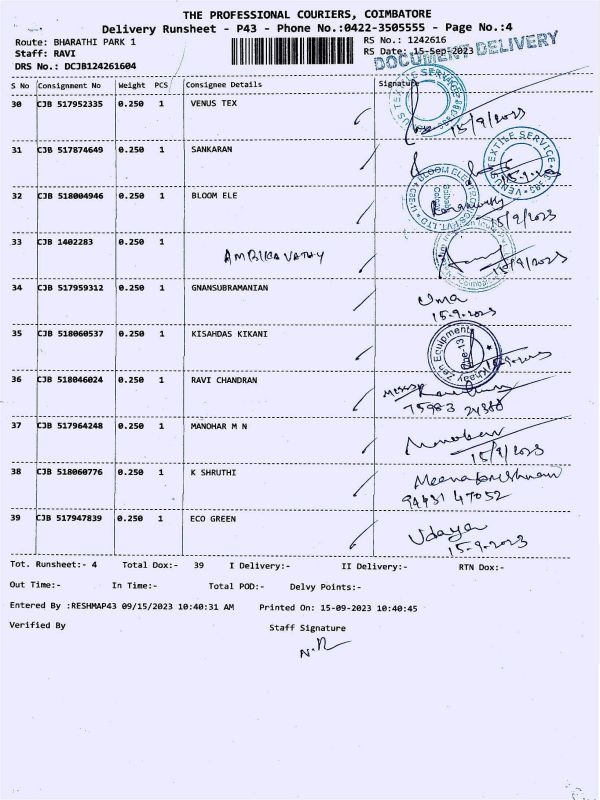 THE PROFESSIONAL COURIERS, COIMBATORE
Delivery Runsheet - P43 - Phone No.:0422-3505555 - Page No.:4
Route: BHARATHI PARK 1 RS No.: 1242616
Staff: RAVI RS Date: 15-Sep-2023
DOCUMENT DELIVERY
DRS No.: DCJB124261604
S No Consignment No Weight PCS Consignee Details Signature
30 CJB 517952335 0.250 1 VENUS TEX
15/9/2023
31 CJB 517874649 0.250 1 SANKARAN
VENUS TEXTILE SERVICE
32 CJB 518004946 0.250 1 BLOOM ELE
15/9/2023
33 CJB 1402283 0.250 1
AMBIKAVATHY
15/9/2023
34 CJB 517959312 0.250 1 GNANSUBRAMANIAN
Uma
15.9.2023
35 CJB 518060537 0.250 1 KISAHDAS KIKANI
36 CJB 518046024 0.250 1 RAVI CHANDRAN
37 CJB 517964248 0.250 1 MANOHAR M N
15/9/2023
38 CJB 518060776 0.250 1 K SHRUTHI
94431 47052
39 CJB 517947839 0.250 1 ECO GREEN
Udaya
15-9-2023
Tot. Runsheet:- 4 Total Dox:- 39 I Delivery:- II Delivery:- RTN Dox:-
Out Time:- In Time:- Total POD:- Delvy Points:-
Entered By :RESHMAP43 09/15/2023 10:40:31 AM Printed On: 15-09-2023 10:40:45
Verified By Staff Signature